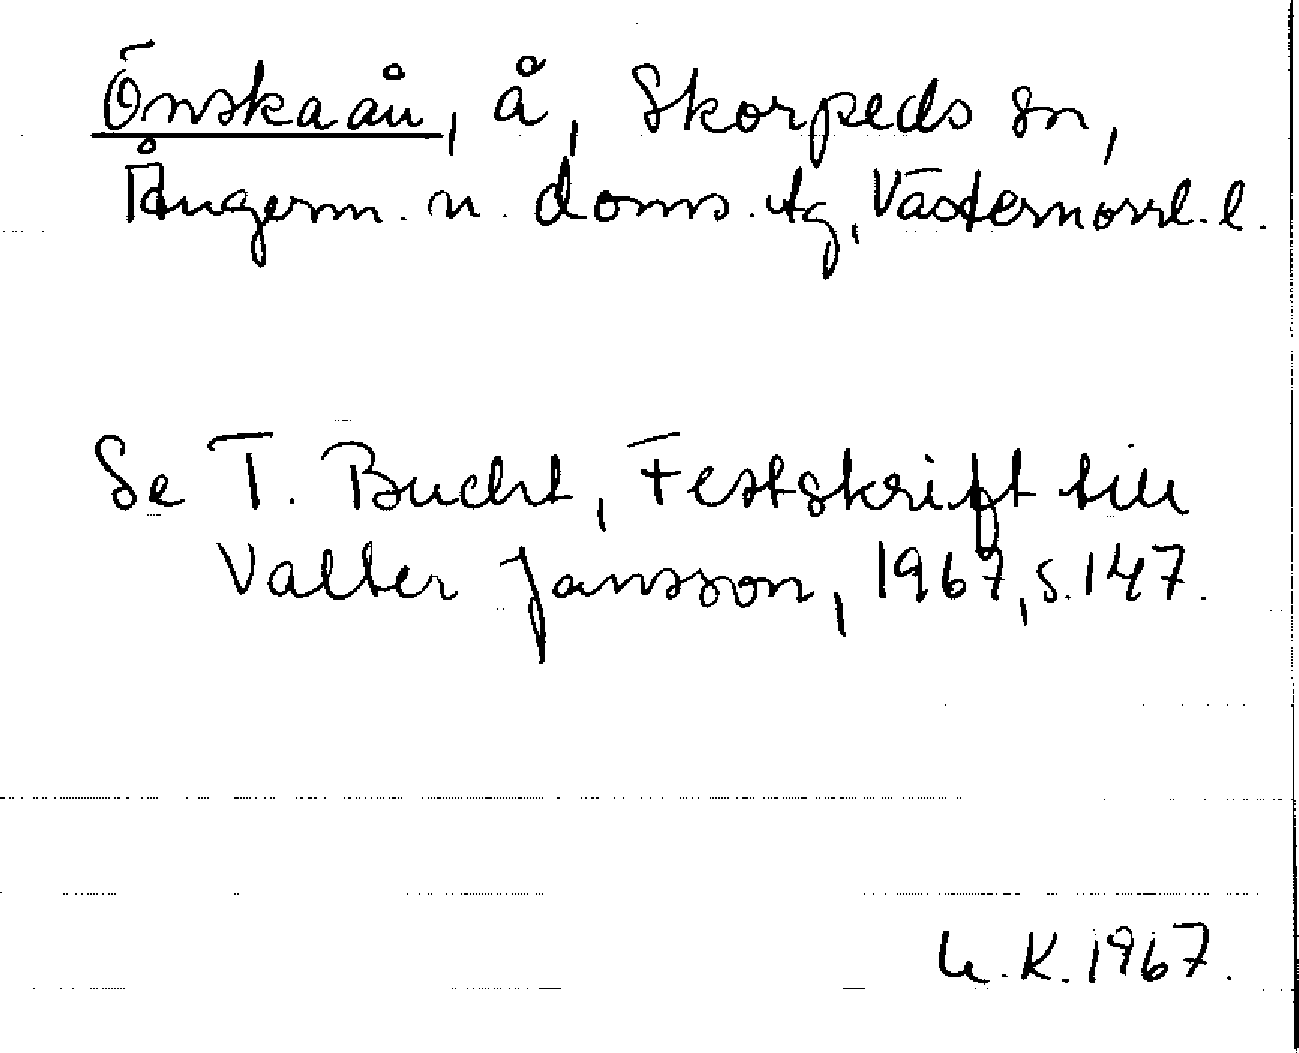 Önskaån, å, Skorpeds sn,
Ångerm. n. doms. tg, Västernorrl. l.
Se T. Bucht, Festskrift till
Valter Jansson, 1967, s. 147.
K. 1967.